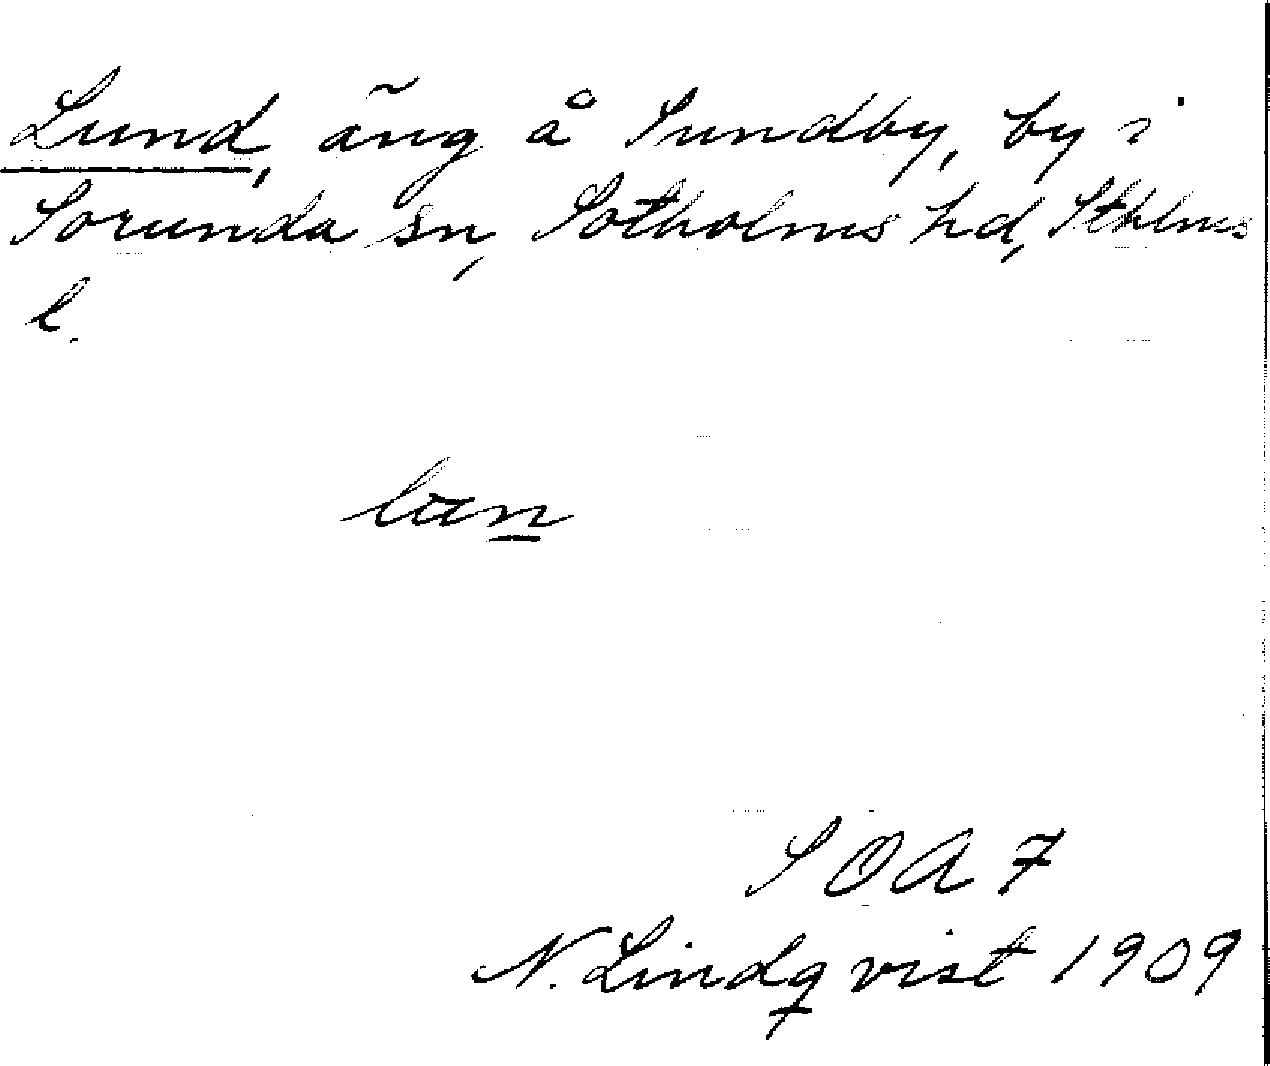 Lund, äng å Sundby, by i
Sorunda sn, Sotholms hd, Sthlms
l.
S O A 7
N. Lindqvist 1909